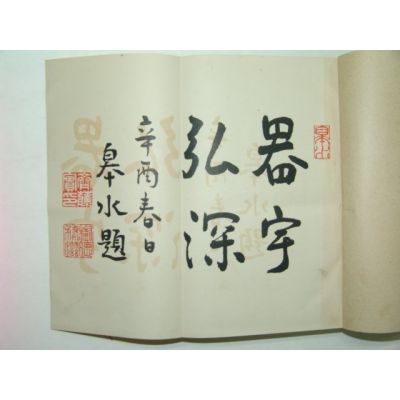 器宇
弘深
辛酉春日
皋水題